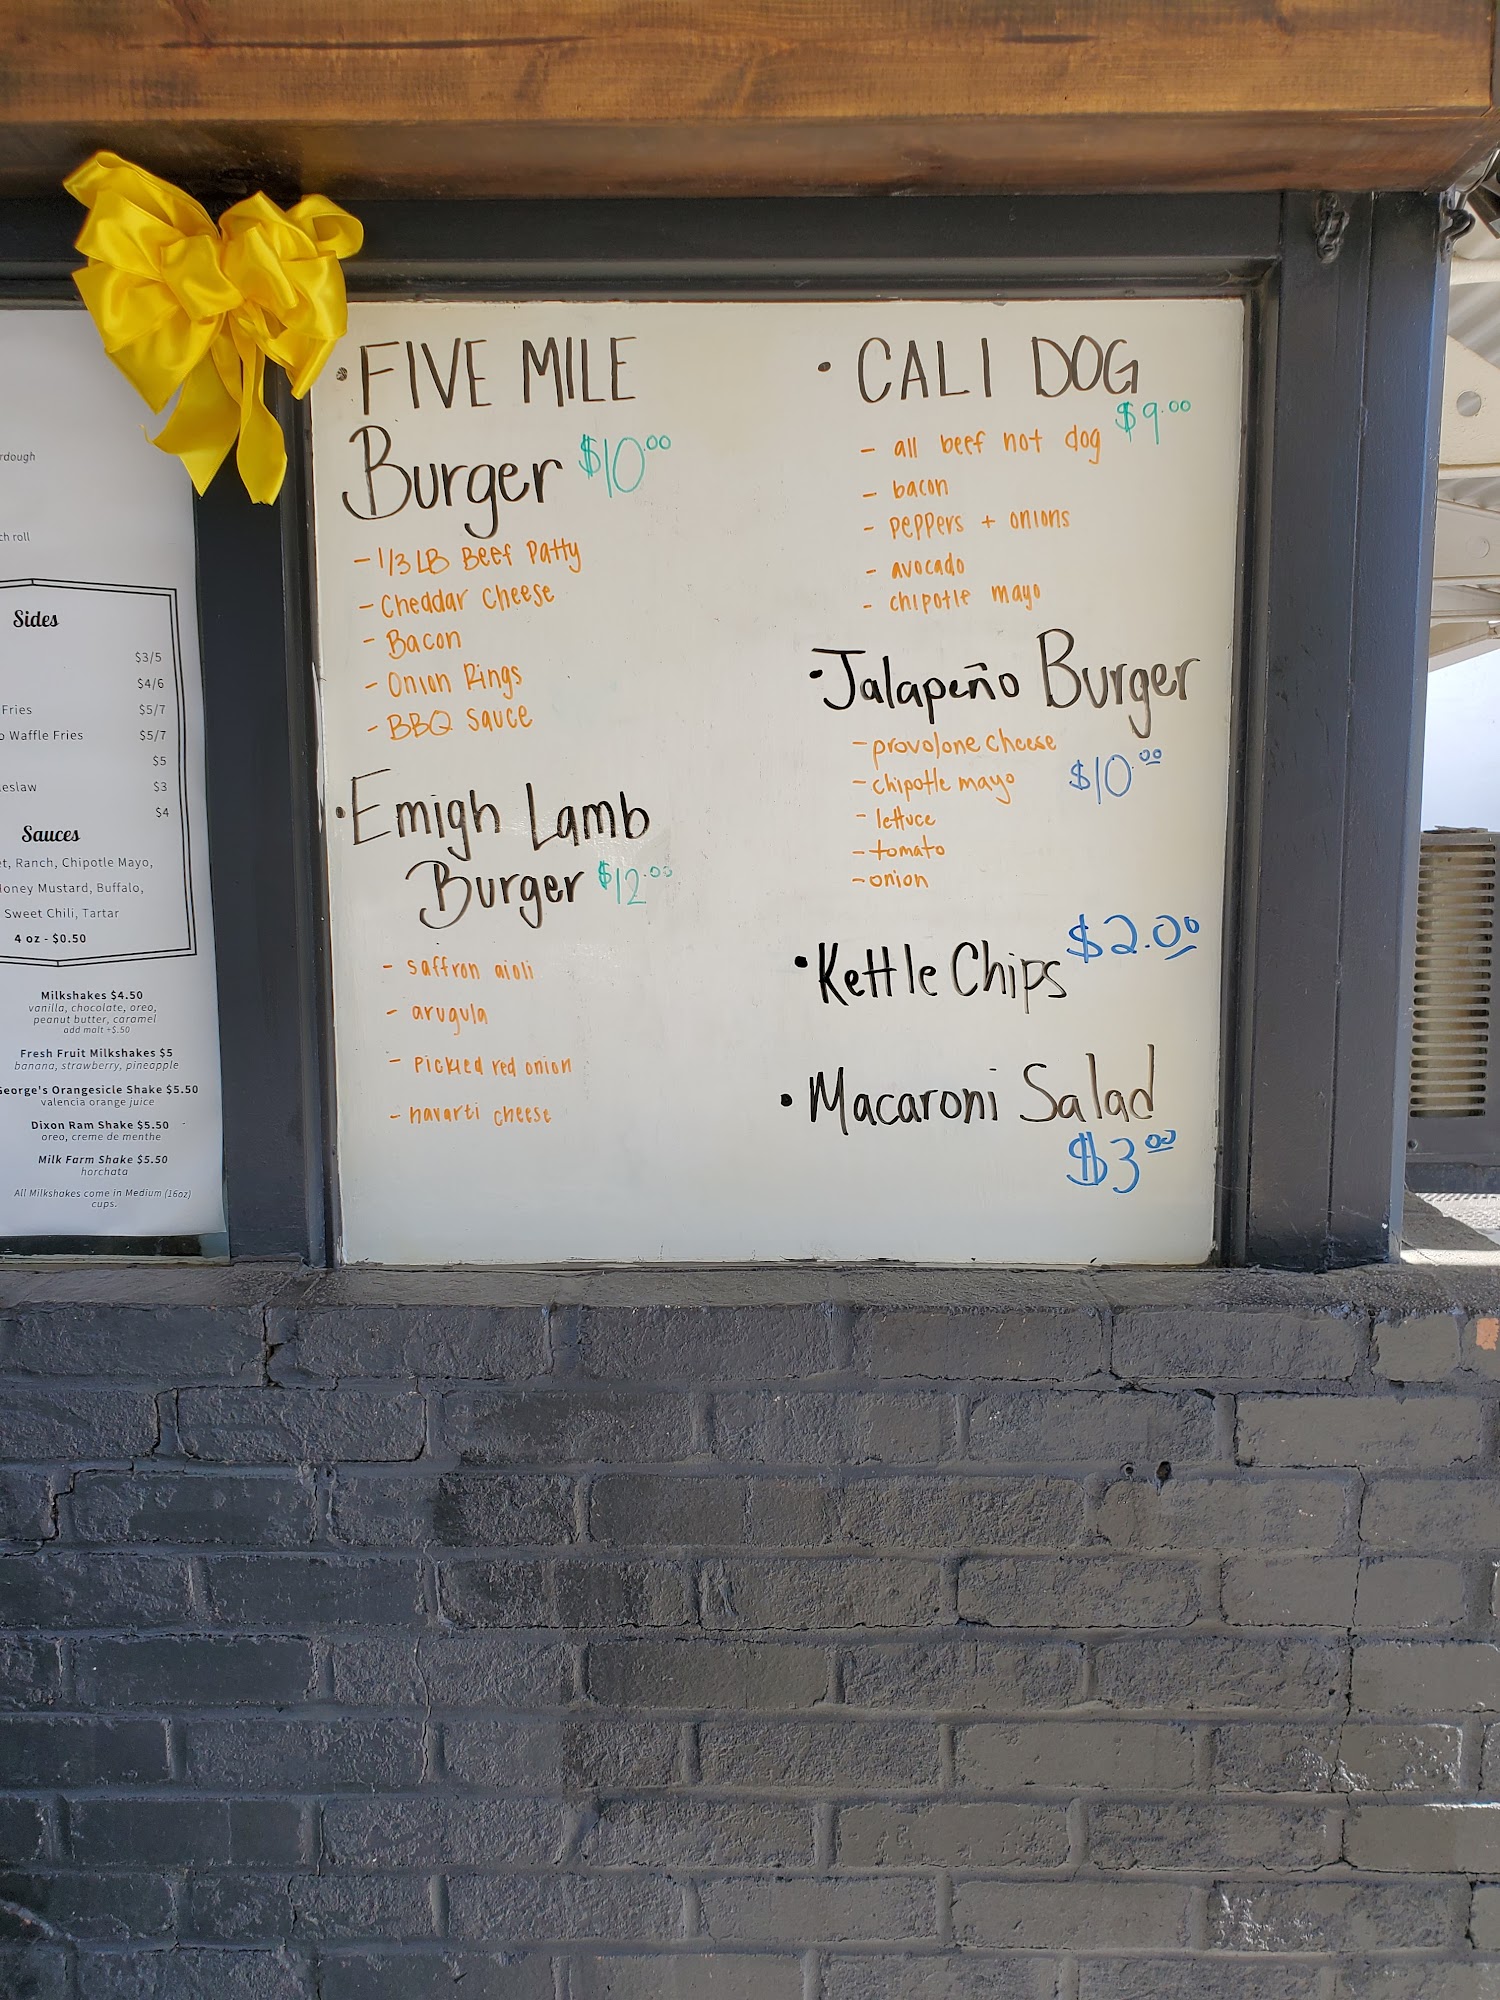 rdough
ch roll
Sides
$3/5
$4/6
Fries $5/7
o Waffle Fries $5/7
$5
eslaw $3
$4
Sauces
et, Ranch, Chipotle Mayo,
Honey Mustard, Buffalo,
Sweet Chili, Tartar
4 oz - $0.50
Milkshakes $4.50
vanilla, chocolate, oreo,
peanut butter, caramel
add malt +$.50
Fresh Fruit Milkshakes $5
banana, strawberry, pineapple
George's Orangesicle Shake $5.50
valencia orange juice
Dixon Ram Shake $5.50
oreo, creme de menthe
Milk Farm Shake $5.50
horchata
All Milkshakes come in Medium (16oz)
cups.
• FIVE MILE
Burger $10.00
- 1/3 LB Beef Patty
- Cheddar Cheese
- Bacon
- Onion Rings
- BBQ Sauce
• Emigh Lamb
Burger $12.00
- saffron aioli
- arugula
- pickled red onion
- havarti cheese
• CALI DOG
$9.00
- all beef hot dog
- bacon
- peppers + onions
- avocado
- chipotle mayo
• Jalapeño Burger
- provolone cheese
- chipotle mayo $10.00
- lettuce
- tomato
- onion
• Kettle Chips $2.00
• Macaroni Salad
$3.00